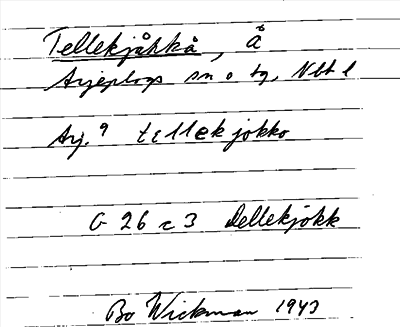 Tellekjåhkå, å
Arjeplogs sn o tg, Nbt l
Arj. 9 tellekjokko
G 26 c 3 Dellekjökk
Bo Wickman 1943